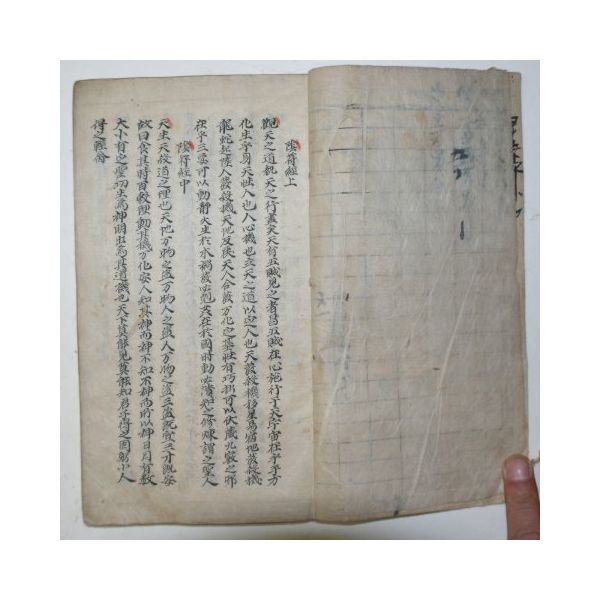 陰符經上
觀天之道執天之行盡矣天有五賊見之者昌五賊在心施行于天宇宙在乎手万
化生乎身天性人也人心機也立天之道以定人也天發殺機移星易宿地發殺機
龍蛇起陸人發殺機天地反覆天人合發万化定基性有巧拙可以伏藏九竅之邪
在乎三要可以動靜火生於木禍發必克奸在於國時動必潰知之修煉謂之聖人
陰符經中
天生天殺道之理也天地万物之盜万物人之盜人万物之盜三盜旣宜三才旣安
故曰食其時百骸理動其機万化安人知其神而神不知不神而所以神日月有數
大小有定聖功生焉神明出焉其道機也天下莫能見莫能知君子得之固躬小人
得之輕命